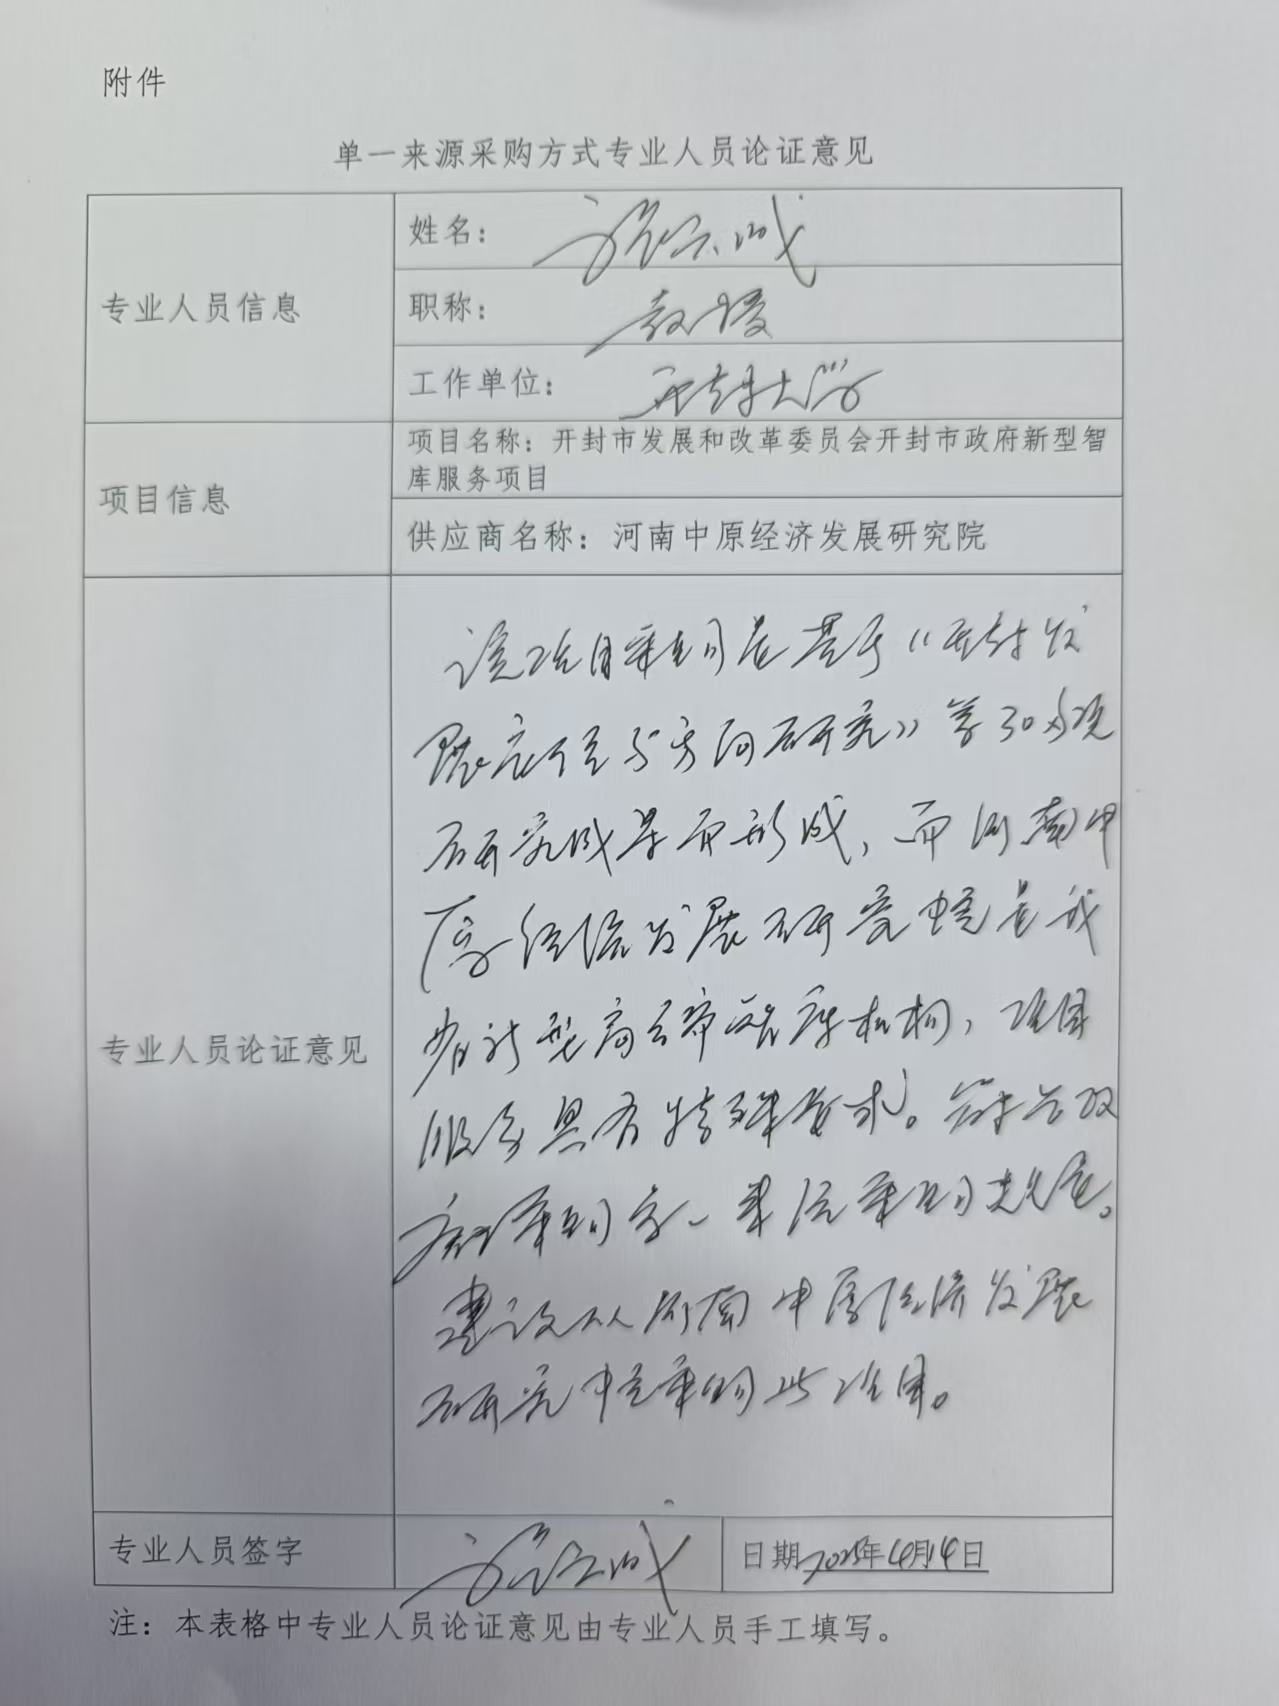 附件
单一来源采购方式专业人员论证意见
专业人员信息
姓名：
职称：教授
工作单位：开封大学
项目信息
项目名称：开封市发展和改革委员会开封市政府新型智
库服务项目
供应商名称：河南中原经济发展研究院
专业人员论证意见
该项目采购是基于《开封发
展定位与方向研究》等30多项
研究成果而形成，而河南中
原经济发展研究院是我
省新型高端智库机构，项目
服务具有特殊要求。符合政
府采购单一来源采购规定。
建议从河南中原经济发展
研究院采购此项目。
专业人员签字
日期2025年4月14日
注：本表格中专业人员论证意见由专业人员手工填写。